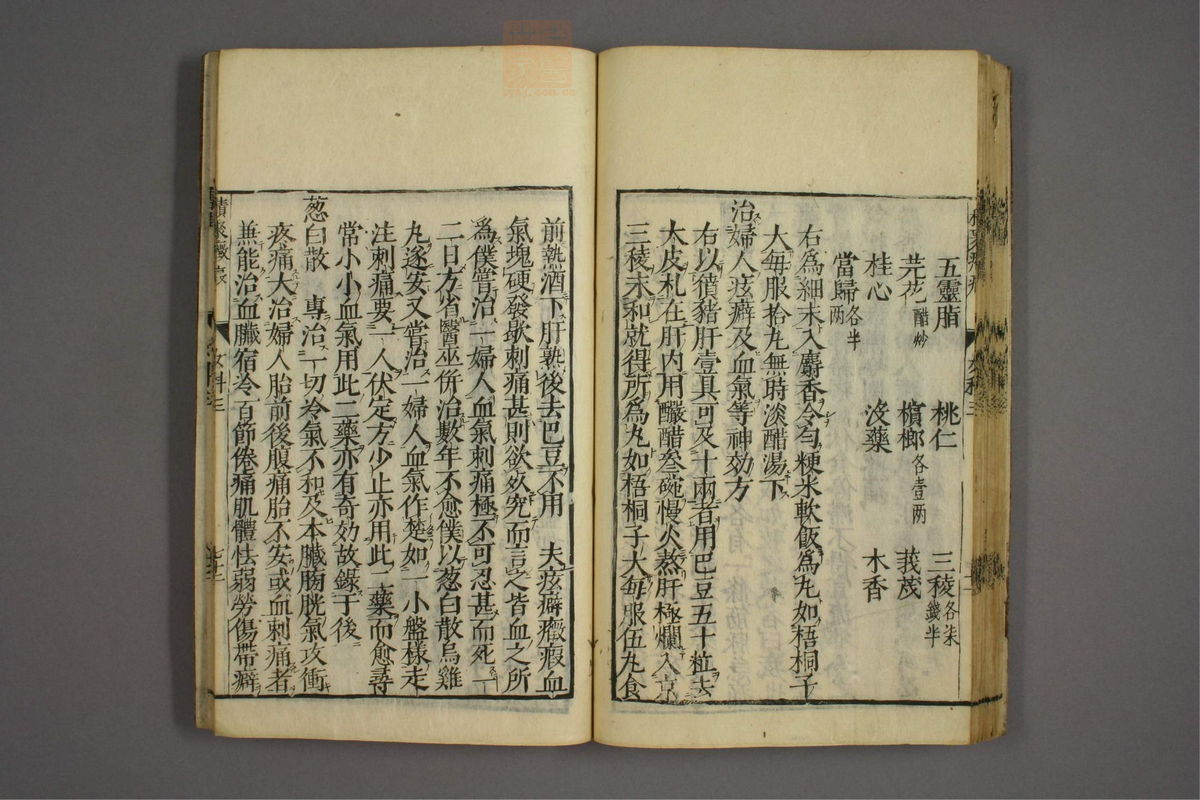 五靈脂 桃仁 三稜各朱錢半
芫花醋炒 檳榔各壹兩 莪茂
桂心 沒藥 木香
當歸各半兩
右爲細末入麝香令勻粳米軟飯爲丸如梧桐子
大每服拾丸無時淡醋湯下
治婦人痃癖及血氣等神効方
右以獖猪肝壹具可及十兩者用巴豆五十粒去
大皮札在肝内用釅醋叁碗慢火熬肝極爛入京
三稜末和就得所爲丸如梧桐子大每服伍丸食
前熱酒下肝熟後去巴豆不用 夫痃癖癥瘕血
氣塊硬發歇刺痛甚則欲死究而言之皆血之所
爲僕嘗治一婦人血氣刺痛極不可忍甚而死一
二日方省醫巫併治數年不愈僕以葱白散烏雞
丸遂安又嘗治一婦人血氣作楚如一小盤樣走
注刺痛要一人伏定方少止亦用此二藥而愈尋
常小小血氣用此二藥亦有奇効故錄于後
葱白散 專治一切冷氣不和及本臟膀胱氣攻衝
疼痛大治婦人胎前後腹痛胎不安或血刺痛者
無能治血臟宿冷百節倦痛肌體怯弱勞傷帶癖
女科三
七十三